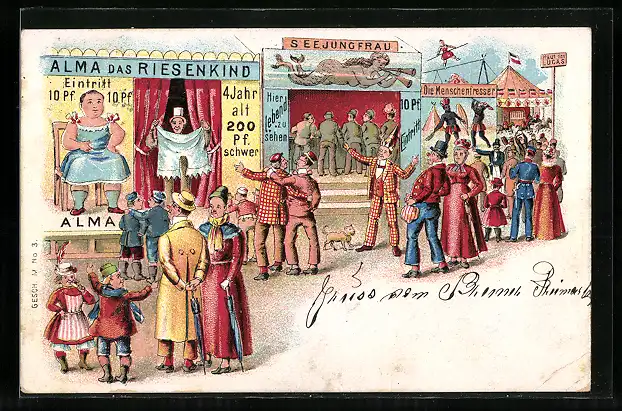 ALMA DAS RIESENKIND
Eintritt
10 Pf. 10 Pf.
4 Jahr
alt
200
Pf.
schwer
ALMA
SEEJUNGFRAU
Hier
lebend
zu
sehen
10 Pf.
Eintritt
Die Menschenfresser
LUCAS
GESCH. M No 3.
Gruss vom Bremer